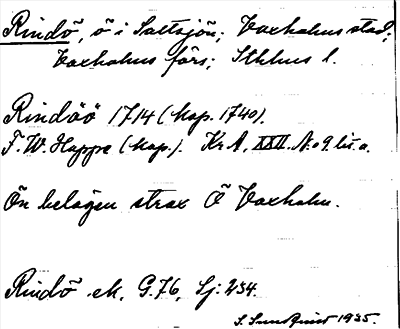 Rindö, ö i Saltsjön; Vaxholms stad;
Vaxholms förs; Sthlms l.
Rindöö 1714 (Kop. 1740).
F. W. Happe (Kop.). Kr A, XXII. No 9 lit. a.
Ön belägen strax Ö Vaxholm.
Rindö ek, G. 76, Sj: 234.
S. Sundquist 1935.